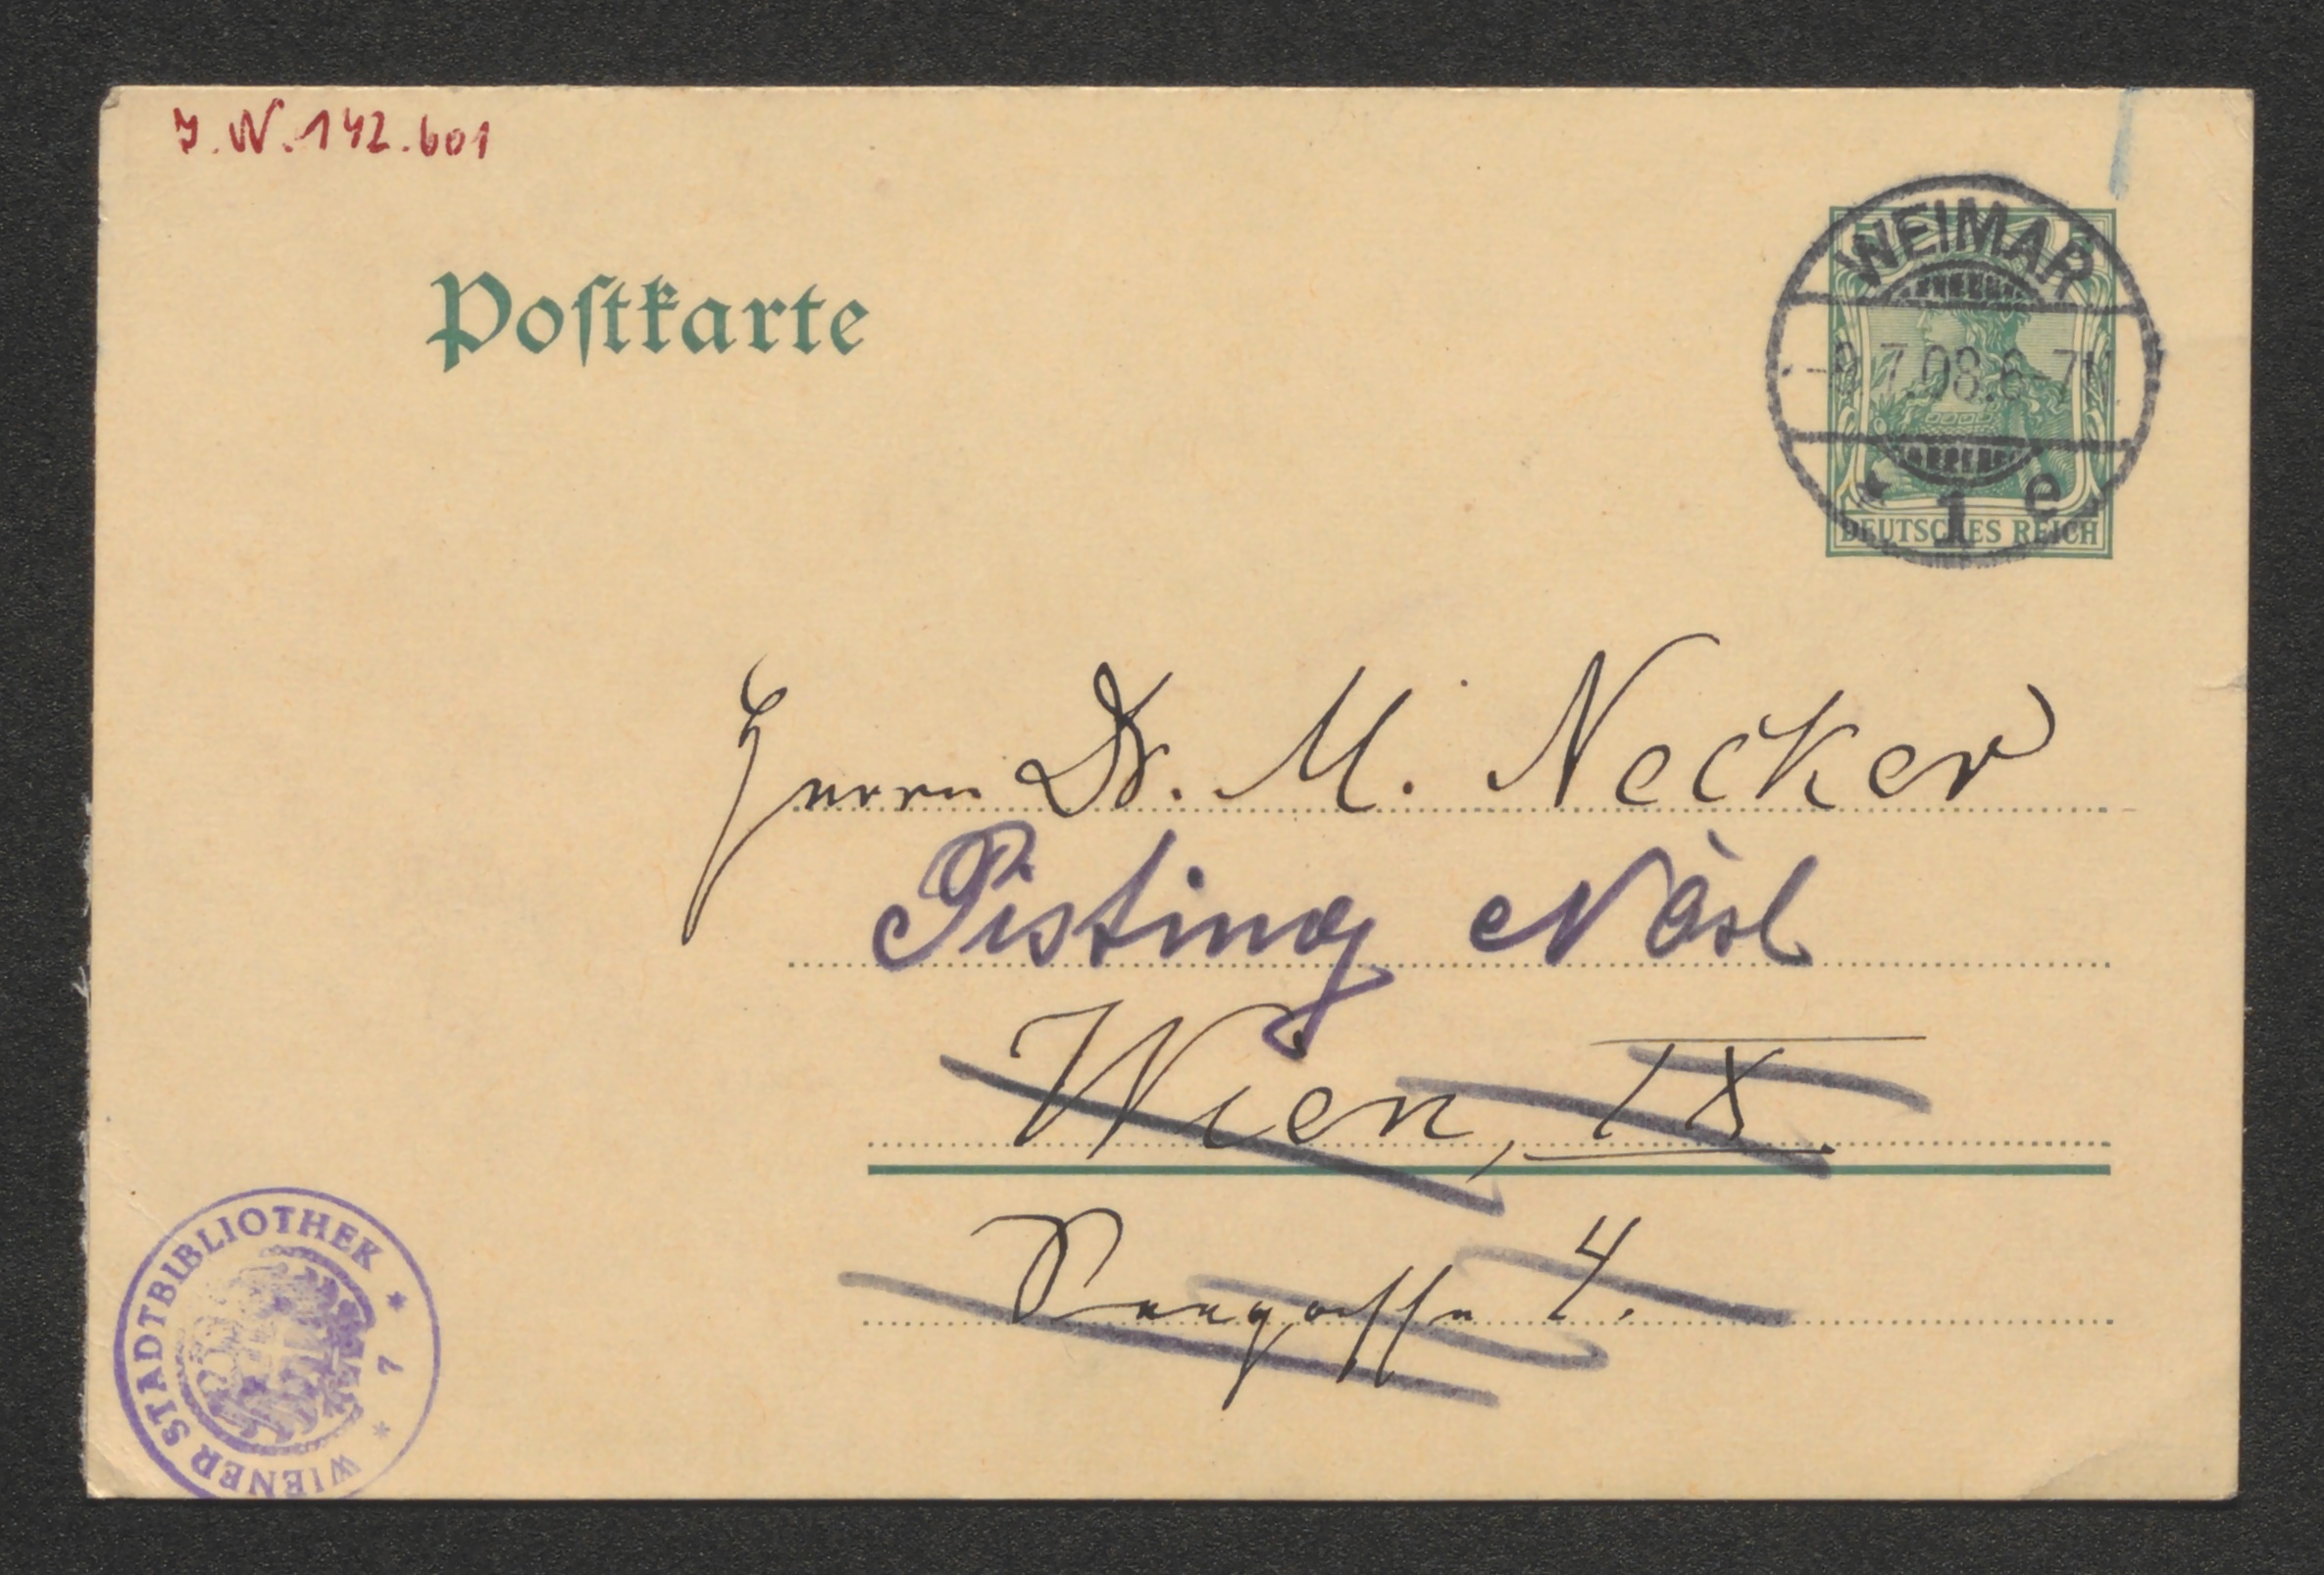 J. N. 142.601
Postkarte
WEIMAR
-9.7.08.6-7N
* 1 e
DEUTSCHES REICH
Herrn Dr. M. Necker
Pisting NÖsl
Wien, IX.
Seegasse 4.
WIENER STADTBIBLIOTHEK * 7 *